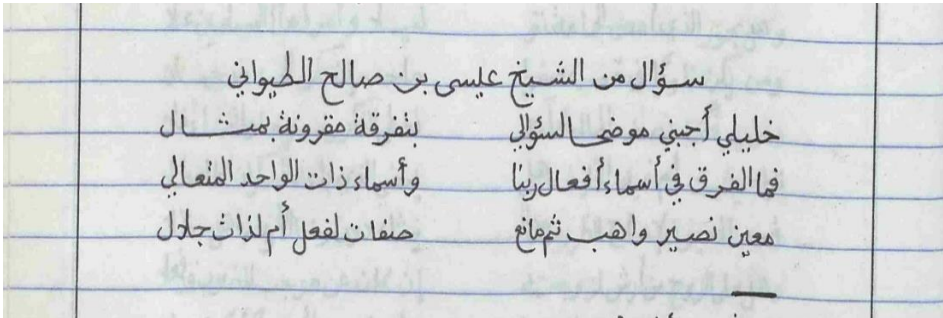 سؤال من الشيخ عيسى بن صالح الطيواني
خليلي أجبني موضحا لسؤالي بتفرقة مقرونة بمثال
فما الفرق في أسماء أفعال ربنا وأسماء ذات الواحد المتعالي
معين نصير واهب ثم مانع صفات لفعل أم لذات جلال